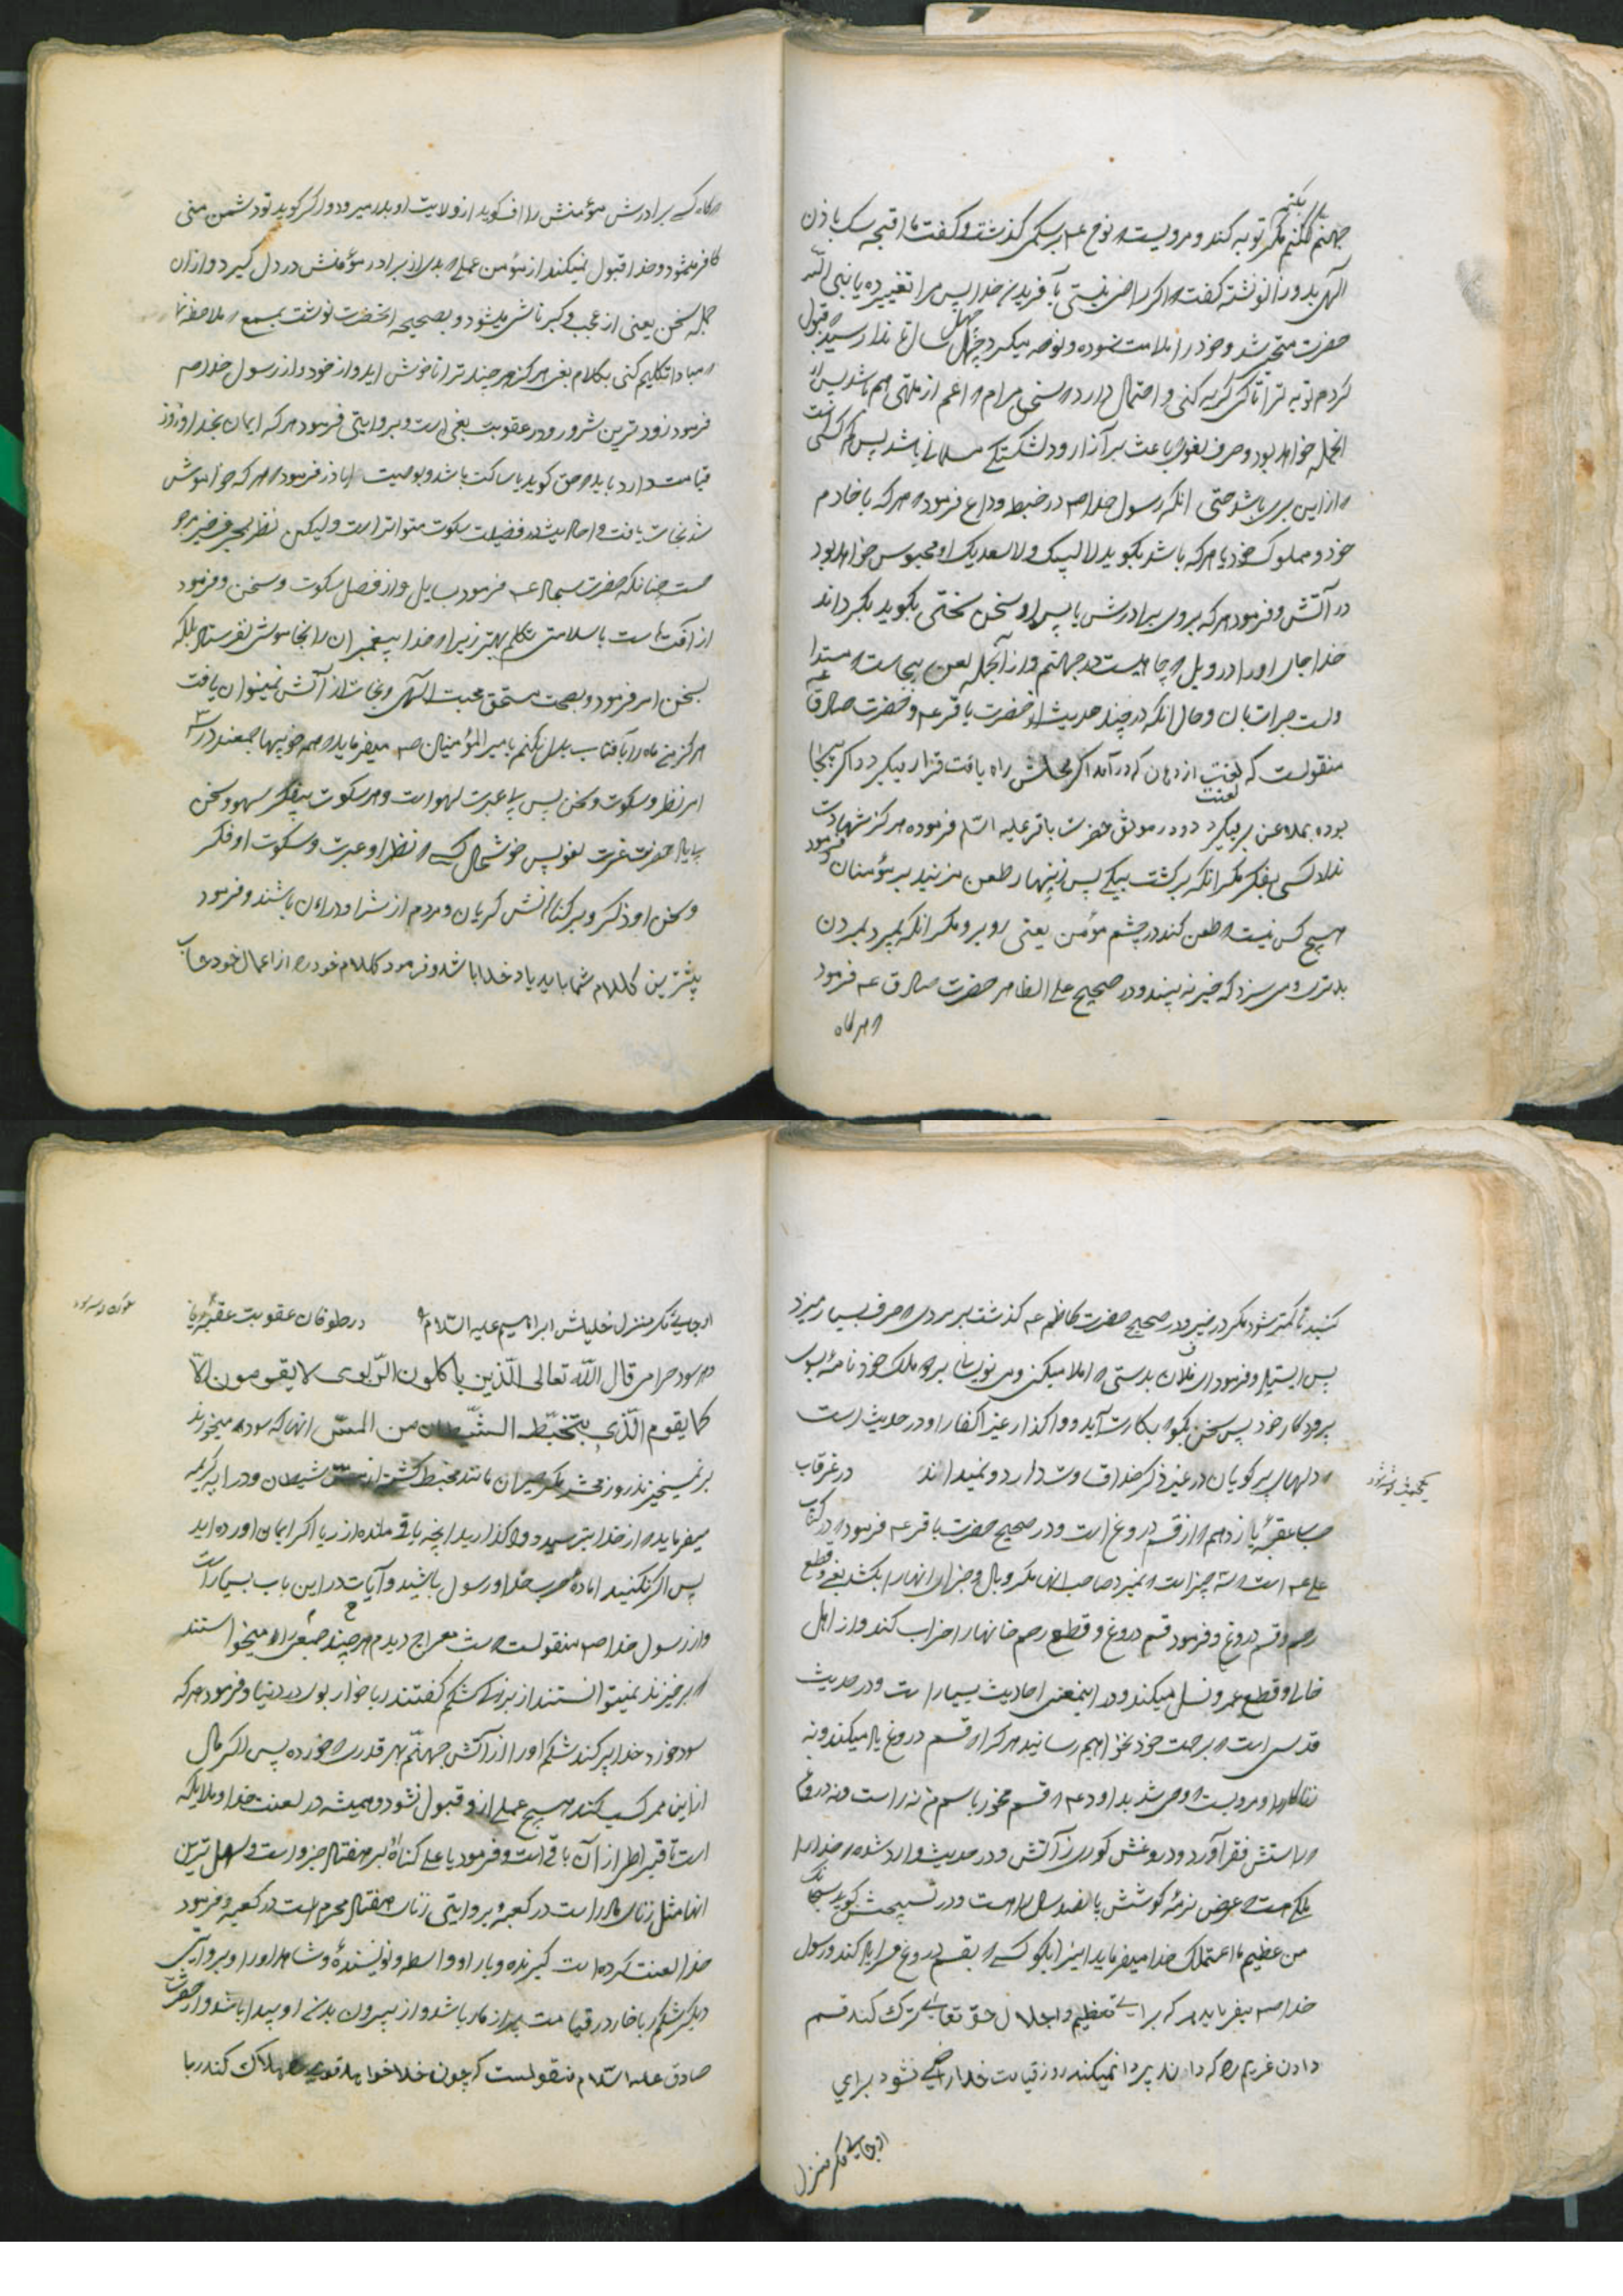 جهنم نکنم مگر توبه کند و مرویست نوح عـ بر سکی گذشت و گفت ما اقبح سک باذن
الهی بدو زانو نشته گفت اگر راضی نیستی بآفریدن خدا پس مرا تغییر ده یا نبی الله
حضرت متحیر شد و خود را ملامت نموده و نوحه میکرد چهل سال تا ندا رسید قبول
کردم توبه ترا تا کی گریه کنی و احتمال دارد
انجمله خواهد بود و حرف لغو باعث بر آزار و دلشکستگی مسلمانی باشد پس
از این بری باشد حتی انکه رسول خدا صـ در خطبه وداع فرمود هر که با خادم
خود و مملوک خود یا هر که باشد بگوید لا لبیک و لا سعدیک او محبوس خواهد بود
در آتش و فرمود هر که بروی برادرش یا پس او سخن سختی بگوید بگرداند
خدا جای او را در ویل چاهیست در جهنم و از آنجمله لعن بیجاست
و حال انکه در چند حدیث از حضرت باقر عـ و حضرت صادق عـ
منقولست که لعنت از دهان که در آمد اگر محلش راه یافت قرار میگیرد و اگر بیجا
بوده بملاعن برمیگردد و در موثق حضرت باقر علیه السلام فرموده هرگز شهادت
نداد کسی بکفر مگر انکه برگشت بیکی پس زینهار طعن مزنید بر مؤمنان و فرمود
هیچ کس نیست طعن کند در چشم مؤمن یعنی روبرو مگر انکه بمیرد بمردن
بدتری و می سزد که خیر نه بیند و در صحیح علی الظاهر حضرت صادق عـ فرمود
هرگاه
هرگاه کسی برادرش مؤمنش را اف گوید از ولایت او بدر میرود و اگر گوید تو دشمن منی
کافر میشود و خدا قبول نمیکند از مؤمن عملی بدی از برادر مؤمنش در دل گیرد و از ان
جمله سخن یعنی از عجب و کبر ناشی میشود و بصحیحه انحضرت نوشت بمسمع ملاحظه نما
مبادا تکلیم کنی بکلام بغی هرگز هر چند ترا ناخوش اید و از خود و از رسول خدا صـ
فرمود زودترین شرور در عقوبت بغی است و بروایتی فرمود هر که ایمان بخدا و روز
قیامت دارد باید حق گوید یا ساکت باشد و بوصیت اباذر فرمود هر که خواموش
شد نجات یافت و احادیث در فضیلت سکوت متواتر است و لیکن نظر
هست چنانکه حضرت سجاد عـ فرمود بسایل از فضل سکوت و سخن و فرمود
از آفت است با سلامتی تکلم بهتر زیرا خدا پیغمبران را بخاموشی نفرستاد بلکه
بسخن امر فرمود و بصمت مستحق محبت الهی و نجات از آتش نمیتوان یافت
هرگز من ماه را بآفتاب بدل نکنم و امیر المؤمنین صـ میفرماید همه خوبیها جمعند در سه
امر نظر و سکوت و سخن پس بی عبرت لهو است و هر سکوت بیفکر سهو و سخن
لغو پس خوشحال کسی نظر او عبرت و سکوت او فکر
و سخن او ذکر و بر گناهانش گریان و مردم از شر او در امان باشند و فرمود
بیشترین کلام شما باید یاد خدا باشد و فرمود کلام خود را از اعمال خود حساب
کنید تا کمتر شود مگر در خیر و در صحیح حضرت کاظم عـ گذشت بر مردی حرف بسیار میزد
پس ایستاد و فرمود ای فلان بدرستی املا میکنی و می نویسانی بر دو ملک خود نامه بسوی
پروردگار خود پس سخن بگو بکارت آید و واگذار غیر انکفار او در حدیث است
دلهای پر گویان در غیر ذکر خدا قساوت دارد و نمیدانند در غرقاب
عقبهٔ یازدهم از قسم دروغ است و در صحیح حضرت باقر عـ فرمود در کتاب
علی عـ است سه چیز است نمیرد صاحب انها مگر وبال و جزای انها را بکشد بغی و قطع
رحم و قسم دروغ و فرمود قسم دروغ و قطع رحم خانها را خراب کند و از اهل
خالی و قطع عمر و نسل میکند و در اینمعنی احادیث بسیار است و در حدیث
قدسی است برحمت خود نخواهم رسانید هر که را قسم دروغ یاد میکند و نه
زناکار و مرویست وحی شد بداود عـ قسم مخور باسم من نه راست و نه دروغ
راستش فقر آورد و دروغش کوری ز آتش و در حدیث وارد شده خدا را
ملکی هست عرض نرمهٔ گوشش پانصد سال راه است و در تسبیحش گوید سبحانک
من عظیم ما اعظمک خدا میفرماید اینرا بگو کسی بقسم دروغ مرا یاد کند و رسول
خدا صـ میفرماید هر که برای تعظیم و اجلال حق تعالی ترک کند قسم
دادن غریم را که داند پروا نمیکند روز قیامت خدا راضی نشود برای
او جایی مگر منزل
او جایی مگر منزل خلیلش ابراهیم علیه السلام در طوفان عقوبت
سود حرام قال الله تعالی الذین یاکلون الربوی لا یقومون الا
کما یقوم الذی یتخبطه الشیطان من المس انها که سود میخورند
بر نمیخیزند روز محشر مگر حیران مانند مخبط گشته از مس شیطان و در ایه کریمه
میفرماید از خدا بترسید و واگذارید انچه باقی مانده از ربا اگر ایمان اورده اید
پس اگر نکنید اماده حرب خدا و رسول باشید و آیات در این باب بسیار است
و از رسول خدا صـ منقولست شب معراج دیدم هر چند جمعی را میخواستند
برخیزند نمیتوانستند از بزرگی شکم گفتند ربا خوار بودند در دنیا و فرمود هر که
سود خورد خدا پر کند شکم او را از آتش جهنم بهر قدری خورده پس اگر مال
از این ممر کسب کند هیچ عملی از و قبول نشود و همیشه در لعنت خدا و ملایکه
است تا قیراطی از آن باقی است و فرمود یا علی گناه ربا هفتاد جزو است و سهل ترین
انها مثل زنای مادر است در کعبه و بروایتی زنای هفتاد محرم است در کعبه و فرمود
خدا لعنت کرده است گیرنده و بار او و واسطه و نویسندهٔ و شاهد او را و بروایتی
دیگر شکم ربا خار در قیامت پر از مار باشد و از بیرون بدن او پیدا باشد و از حضرت
صادق علیه السلام منقولست که چون خدا خواهد قومی را هلاک کند ربا